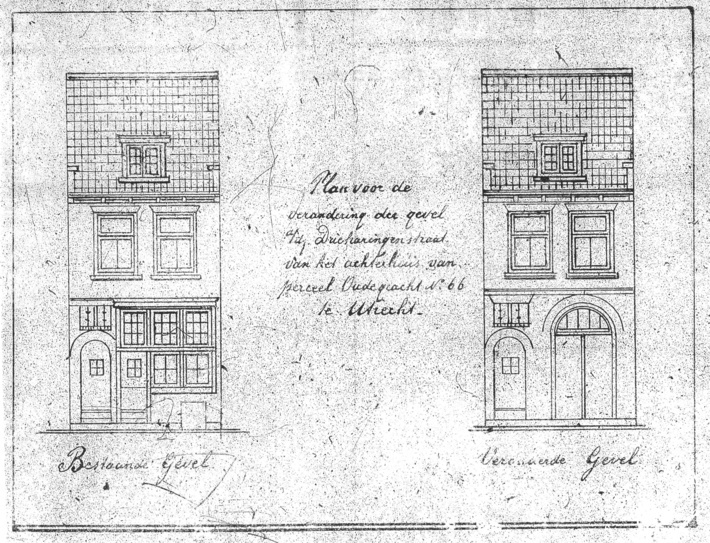 Plan voor de
verandering der gevel
Zij. Drieharingenstraat
van het achterhuis van
perceel Oudegracht No 66
te Utrecht.
Bestaande Gevel.
Veranderde Gevel.